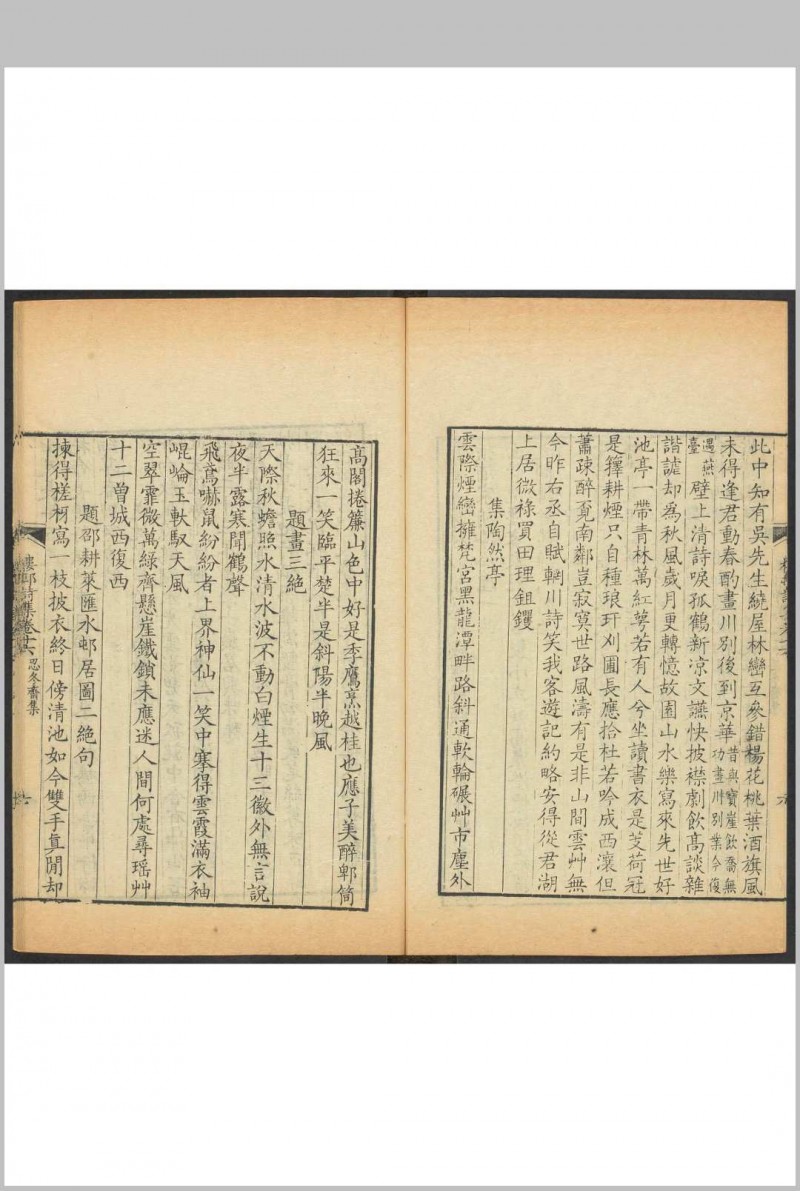 此中知有吳先生繞屋林巒互參錯楊花桃葉酒旗風
未得逢君動春酌畫川別後到京華昔與寶崖飲喬無功畫川別業今復
遇燕臺壁上清詩唳孤鶴新凉文讌快披襟劇飲髙談雜
諧謔却為秋風歲月更轉憶故園山水樂寫來先世好
池亭一帶青林萬紅萼若有人兮坐讀書衣是芰荷冠
是籜耕煙只自種琅玕刈圃長應拾杜若吟成西瀼但
蕭疎醉覔南鄰豈寂寞世路風濤有是非山間雲艸無
今昨右丞自賦輞川詩笑我客遊記約略安得從君湖
上居微祿買田理鉏钁
集陶然亭
雲際煙巒擁梵宮黑龍潭畔路斜通軟輪碾艸市塵外
髙閣捲簾山色中好是季鷹烹越桂也應子美醉郫筒
狂來一笑臨平楚半是斜陽半晚風
題畫三絶
天際秋蟾照水清水波不動白煙生十三徽外無言說
夜半露寒聞鶴聲
飛鳶嚇鼠紛紛者上界神仙一笑中搴得雲霞滿衣袖
崐崘玉軑馭天風
空翠霏微萬綠齊懸崖鐵鎖未應迷人間何處尋瑶艸
十二曾城西復西
題邵耕萊匯水邨居圖二絶句
揀得槎枒寫一枝披衣終日傍清池如今雙手真閒却
樓邨詩集卷十六 忍冬齋集